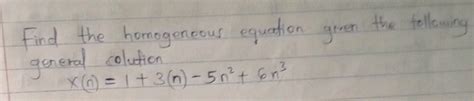 Find the homogeneous equation given the following
general colution
x(n) = 1 + 3(n) - 5n² + 6n³